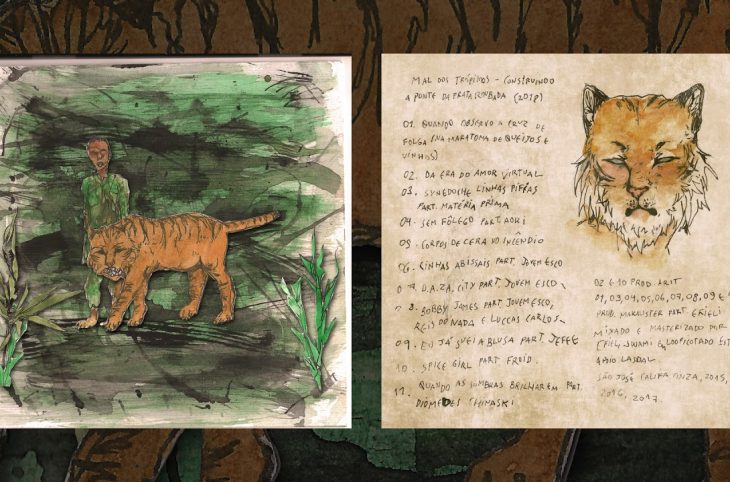 MAL DOS TRÓPICOS - CONSTRUINDO
A PONTE DA PRATA ROUBADA (2018)
01. QUANDO OBSERVO A CRUZ DE
FOLGA (NA MARATONA DE QUEIJOS E
VINHOS)
02. DA ERA DO AMOR VIRTUAL
03. SYNEDOCHE LINHAS PIFFAS
PART. MATÉRIA PRIMA
04. SEM FÔLEGO PART AORI
05. CORPOS DE CERA NO INCÊNDIO
06. RINHAS ABISSAIS PART. JOVEM ESCO
07. D.A.Z.A. CITY PART. JOVEM ESCO
08. BOBBY JAMES PART JOVEM ESCO,
REIS DO NADA E LUCCAS CARLOS
09. EU JÁ SUEI A BLUSA PART. JEFFE
10. SPICE GIRL PART FROID.
11. QUANDO AS SOMBRAS BRILHAREM PART.
DIOMEDES CHINASKI
02 E 10 PROD. ARIT
01, 03, 04, 05, 06, 07, 08, 09 E
PROD. MAKALISTER PART.
MIXADO E MASTERIZADO POR
SÃO JOSÉ 2015,
2016, 2017.